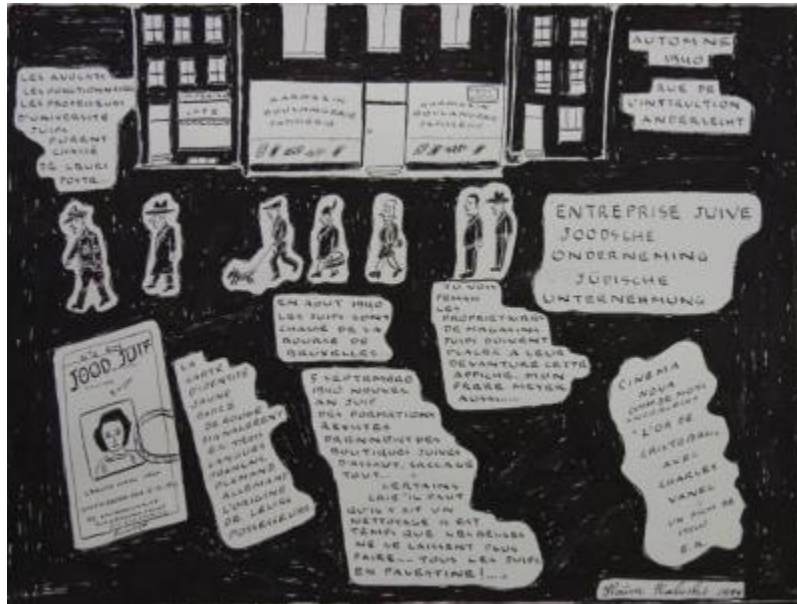 LES AVOCATS
LES FONCTIONNAIRES
D'UNIVERSITÉ
JUIFS
FURENT
CHASSÉ
DE LEURS
POSTE...
CAFÉ
BOULANGERIE
BOULANGERIE
AUTOMNE
1940
RUE DE
L'INSTRUCTION
ANDERLECHT
ENTREPRISE JUIVE
JOODSCHE
ONDERNEMING
JÜDISCHE
UNTERNEHMUNG
EN AOUT 1940
LES JUIFS SONT
CHASSÉ DE LA
BOURSE DE
BRUXELLES
LES
PROPRIETAIRES
DE MAGASINS
JUIFS DOIVENT
PLACER A LEUR
DEVANTURE CETTE
AFFICHE... MON
FRERE MEYER
AUSSI.....
JOOD. JUIF
LA
CARTE
D'IDENTITÉ
JAUNE
DE ROUGE
EN TROIS
LANGUES
FRANÇAIS
FLAMAND
ALLEMAND
L'ORIGINE
DE LEURS
POSSESSEURS
5 SEPTEMBRE
1940 NOUVEL
AN JUIF
DES FORMATIONS
REXISTES
PRENNENT DES
BOUTIQUES JUIVES
D'ASSAUT, SACCAGE
TOUT...
CERTAINS
QU'IL Y AIT UN
NETTOYAGE IL EST
TEMPS QUE LES BELGES
NE SE LAISSENT PLUS
FAIRE... TOUS LES JUIFS
EN PALESTINE !.....
CINEMA
NOVA
"L'OR DE
CRISTOBAL
AVEC
CHARLES
VANEL
UN FILM DE
1940